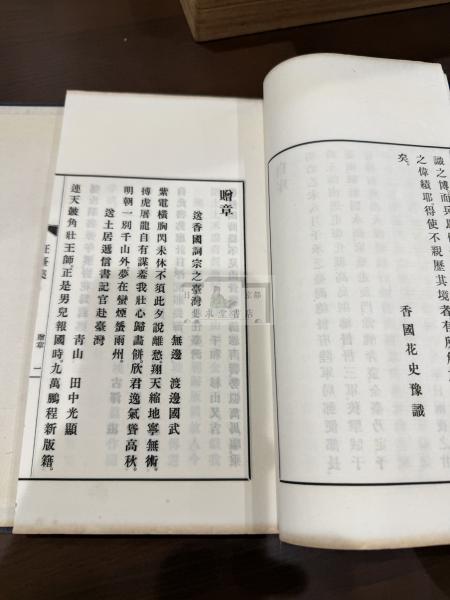 識之博而兵馬
之偉績耶得使不親歷其境者有所解
矣。
香國花史豫識
贈章
送香國詞宗之臺灣
無邊 渡邊國武
紫電橫胸閃未休不須此夕說離愁。翔天縮地寧無術。
搏虎屠龍自有謀。羞我壯心歸畫餠。欣君逸氣聳高秋。
明朝一別千山外。夢在蠻煙蜑雨州。
送土居遞信書記官赴臺灣
青山 田中光顯
連天鼓角壯王師。正是男兒報國時。九萬鵬程新版籍。
臺集 贈章 一